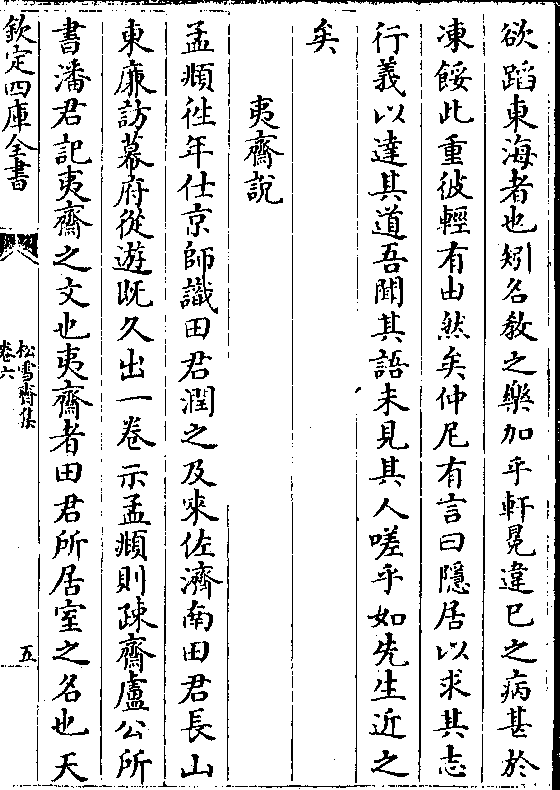 欲蹈東海者也矧名教之樂加乎軒冕違已之病甚於
凍餒此重彼輕有由然矣仲尼有言曰隱居以求其志
行義以達其道吾聞其語未見其人嗟乎如先生近之
矣
夷齋說
孟頫徃年仕京師識田君潤之及來佐濟南田君長山
東廉訪幕府從遊既久出一卷示孟頫則疎齋盧公所
書潘君記夷齋之文也夷齋者田君所居室之名也天
欽定四庫全書
松雪齋集
卷六
五